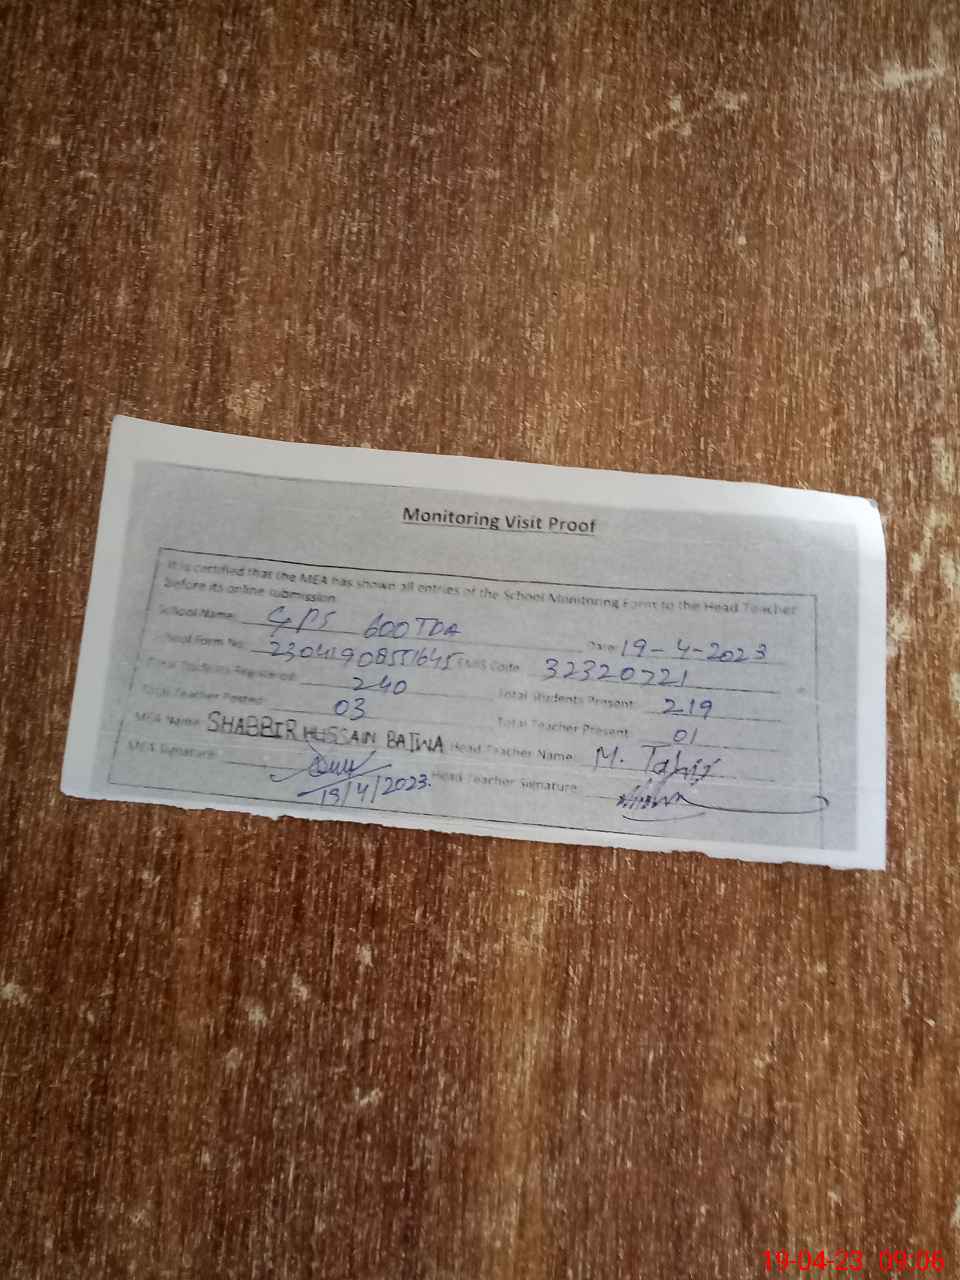 Monitoring Visit Proof
It is certified that the MEA has shown all entries of the School Monitoring Form to the Head Teacher
before its online submission
School Name: GPS 600 TDA Date: 19-4-2023
School Form No: 23041908551645 EMIS Code: 32320721
Total Students Registered: 240 Total Students Present: 219
Total Teacher Posted: 03 Total Teacher Present: 01
MEA Name: SHABBIR HUSSAIN BAJWA Head Teacher Name: M. Tahir
MEA Signature: Head Teacher Signature:
19/4/2023.
19-04-23 09:06